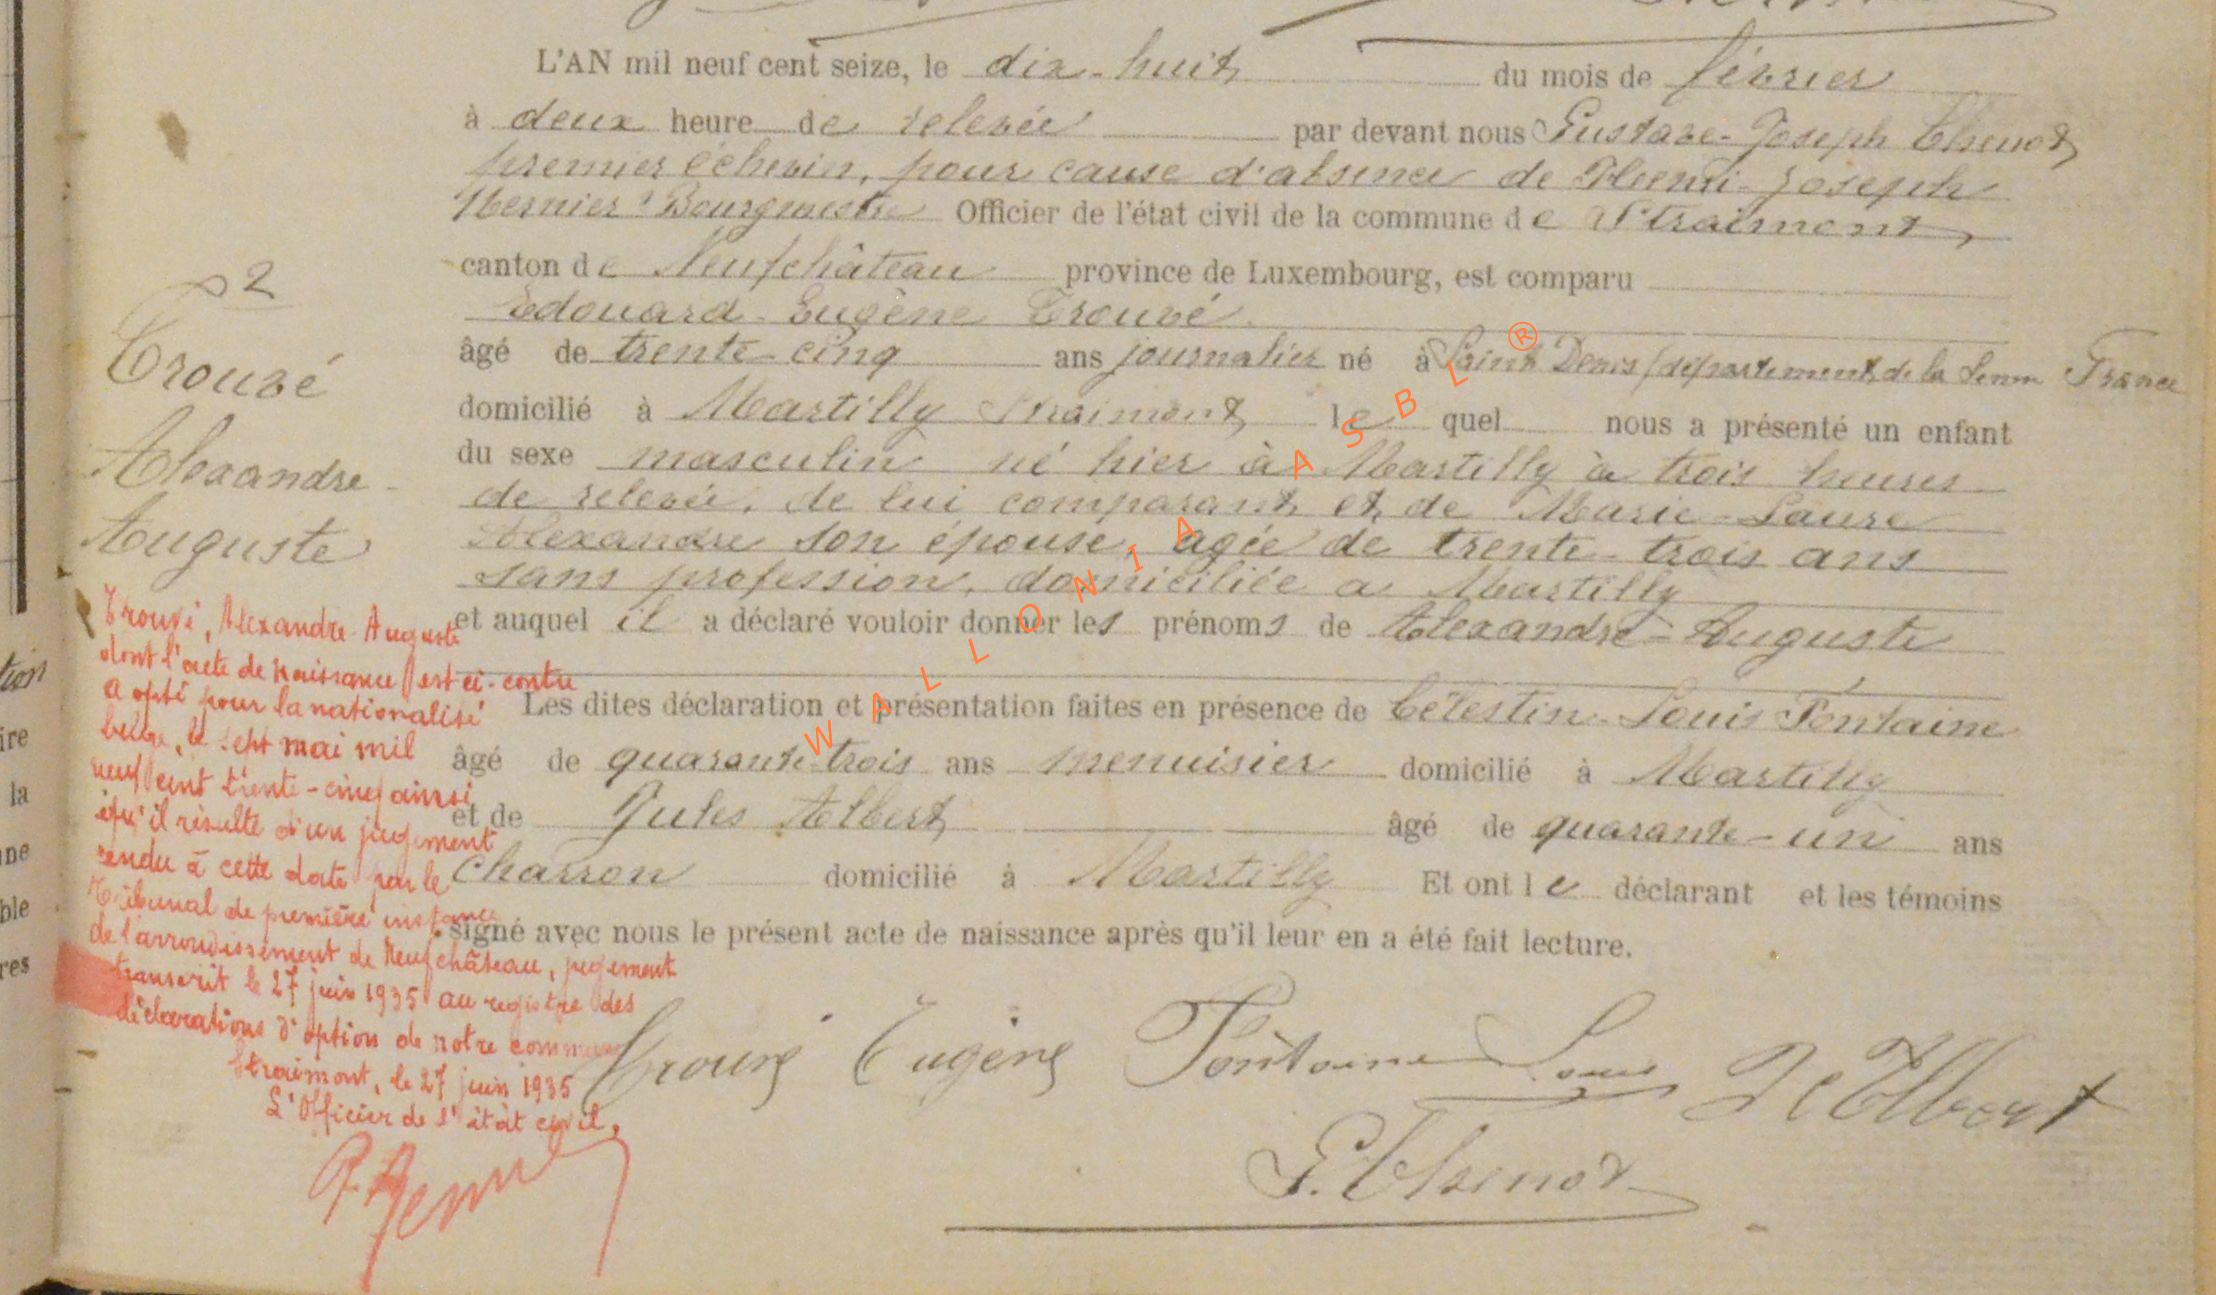 L'AN mil neuf cent seize, le dix-huit du mois de février
à deux heure de relevée par devant nous Gustave-Joseph Thenot
premier échevin, pour cause d'absence de Henri-Joseph
Hernier Bourgmestre Officier de l'état civil de la commune de Straimont
canton de Neufchâteau province de Luxembourg, est comparu
Edouard-Eugène Trouvé
âgé de trente-cinq ans journalier né à Saint Denis (département de la Seine France
domicilié à Martilly Straimont lequel nous a présenté un enfant
du sexe masculin né hier à Martilly à trois heures
de relevée, de lui comparant et de Marie-Laure
Alexandre son épouse, agée de trente-trois ans
sans profession, domiciliée a Martilly
et auquel il a déclaré vouloir donner les prénoms de Alexandre-Auguste
Les dites déclaration et présentation faites en présence de Célestin-Louis Fontaine
âgé de quarante-trois ans menuisier domicilié à Martilly
et de Jules Albert âgé de quarante-un ans
charron domicilié à Martilly Et ont le déclarant et les témoins
signé avec nous le présent acte de naissance après qu'il leur en a été fait lecture.
Trouvé Eugène Fontaine Louis J Albert
G. Thenot
2
Trouvé
Alexandre-
Auguste
Trouvé, Alexandre-Auguste
dont l'acte de naissance est ci-contre
a opté pour la nationalité
belge, le sept mai mil
neuf cent trente-cinq ainsi
qu'il résulte d'un jugement
rendu à cette date par le
Tribunal de première instance
de l'arrondissement de Neufchâteau, jugement
transcrit le 27 juin 1935 au registre des
déclarations d'option de notre commune
Straimont, le 27 juin 1935
L'Officier de l'état civil,
tion
ire
la
ne
ble
res
WALLONIA ASBL ®